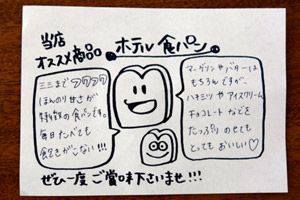 当店
オススメ商品
ホテル食パン
ミミまでフワフワ
ほんのり甘さが
特徴の食パンです。
毎日食べても
飽きがこない!!!
マーガリンやバターは
もちろんですが、
ハチミツやアイスクリーム、
チョコレートなどを
たっぷりのせても
とってもおいしい♡
ぜひ一度ご賞味下さいませ!!!